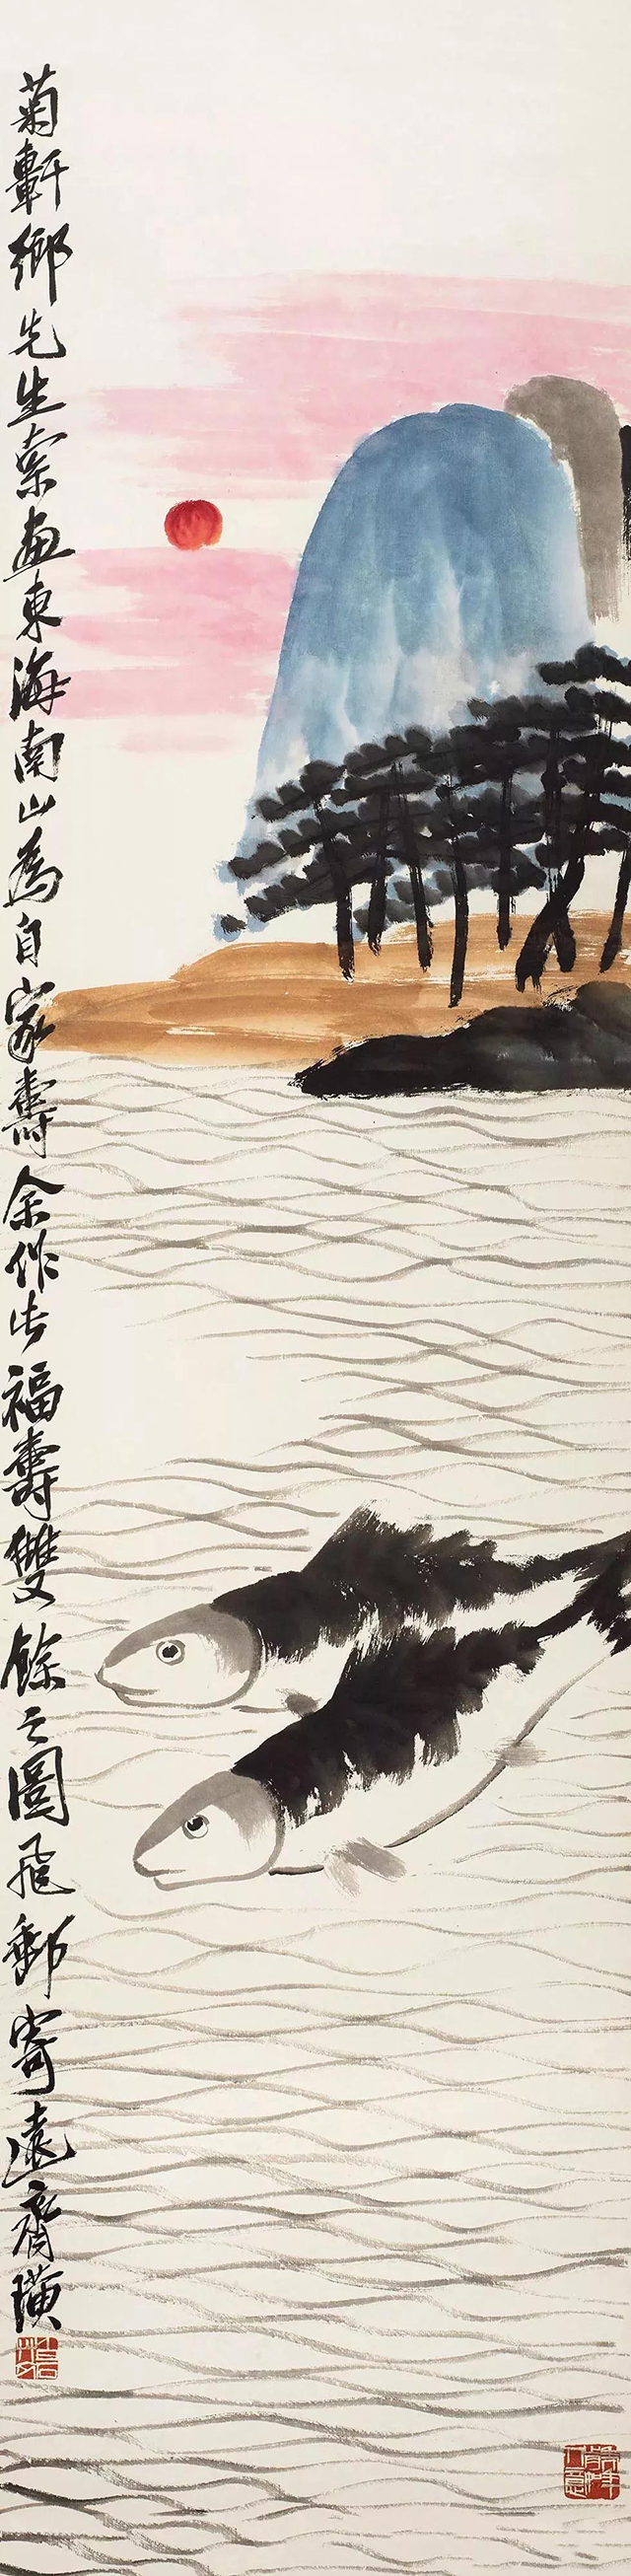 菊軒鄉先生索畫東海南山為自家壽余作此福壽雙餘之圖飛郵寄遠齊璜